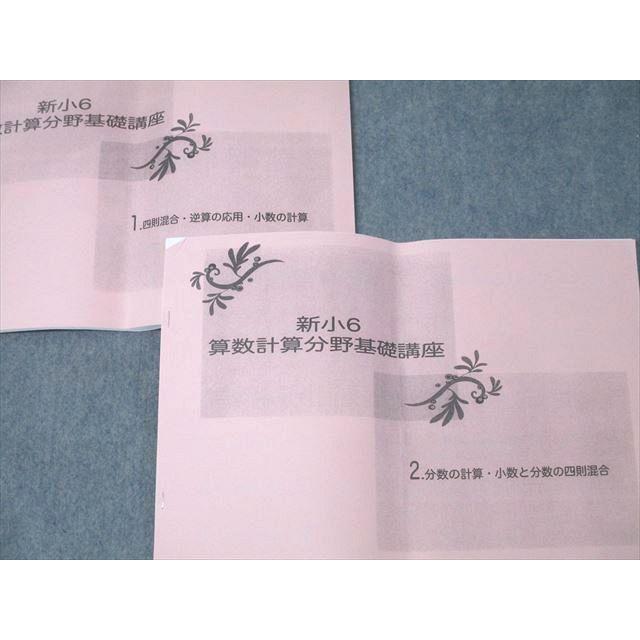 新小6
計算分野基礎講座
1.四則混合・逆算の応用・小数の計算
新小6
算数計算分野基礎講座
2.分数の計算・小数と分数の四則混合